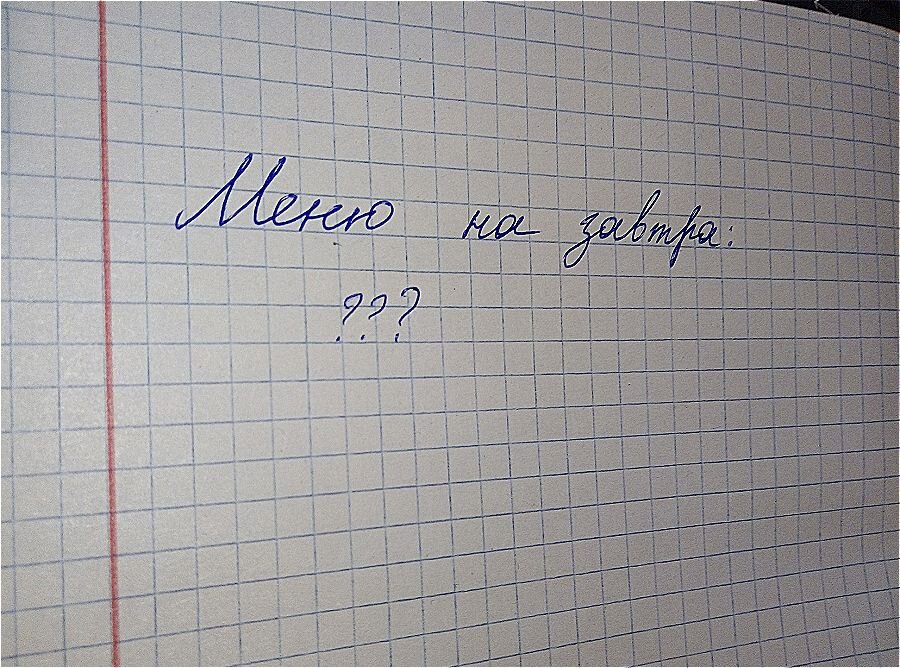 Меню на завтра:
???